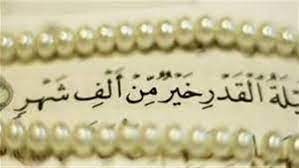 لَةُ الْقَدْرِ خَيْرٌ مِّنْ أَلْفِ شَهْرٍ